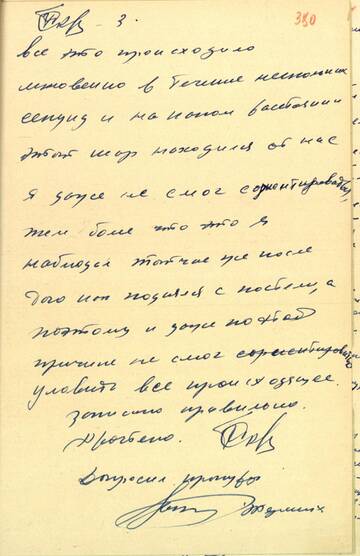 - 3 -
380
все это происходило
мгновенно в течение нескольких
секунд и на каком расстоянии
этот шар находился от нас
я даже не смог сориентироваться,
тем более что это я
наблюдал тотчас же после
того как поднялся с постели, а
поэтому и даже по этой
причине не смог сориентироваться
уловить все происходящее.
Записано правильно.
Прочтено.
Допросил прокурор